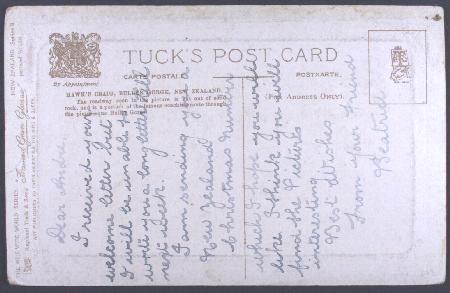 TUCK'S POST CARD
By Appointment
CARTE POSTALE
POSTKARTE.
HAWK'S CRAIG, BULLER GORGE, NEW ZEALAND.
The roadway seen in the picture is cut out of solid
rock, and is a portion of the famous coaching route through
the picturesque Buller Gorge.
(FOR ADDRESS ONLY).
THE WIDE WIDE WORLD SERIES
NEW ZEALAND
Raphael Tuck & Sons'
Dear André,
I received your
welcome letter but
I will be unable to
write you a long letter till
next week.
I am sending you a
New Zealand
Christmas number
which I hope you will
like. I think you will
find the Pictures
interesting
Best Wishes
from your friend
Beatrice